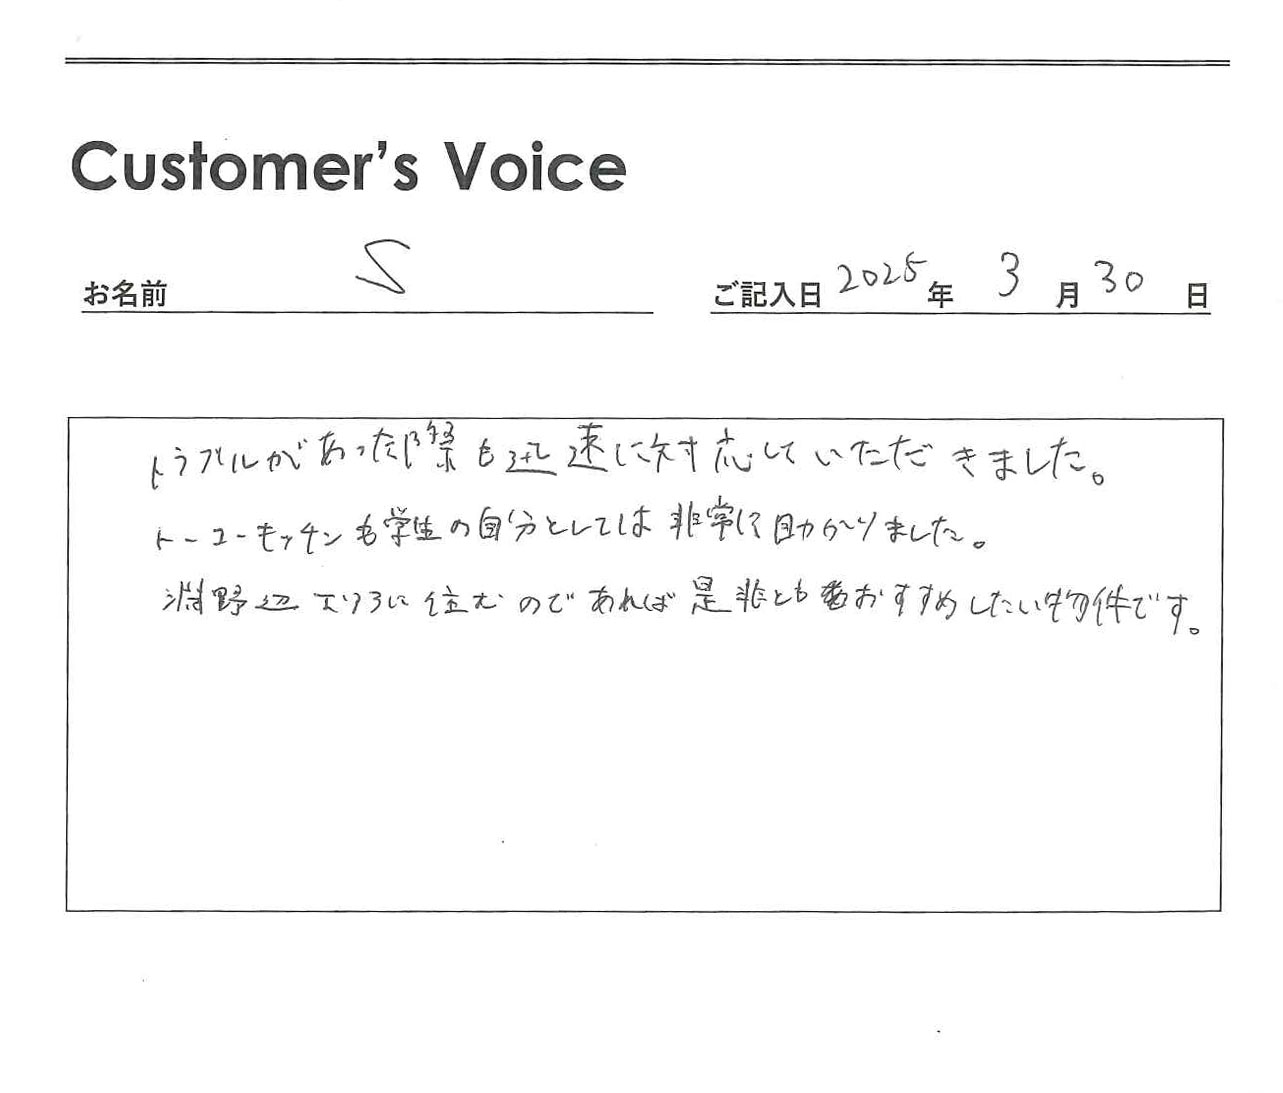 Customer's Voice
お名前 S ご記入日 2025年 3月 30日
トラブルがあった際も迅速に対応していただきました。
トーコーキッチンも学生の自分としては非常に助かりました。
淵野辺エリアに住むのであれば是非ともおすすめしたい物件です。